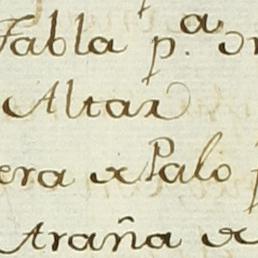 Tabla p.ª
Altar
era de Palo p
Araña de